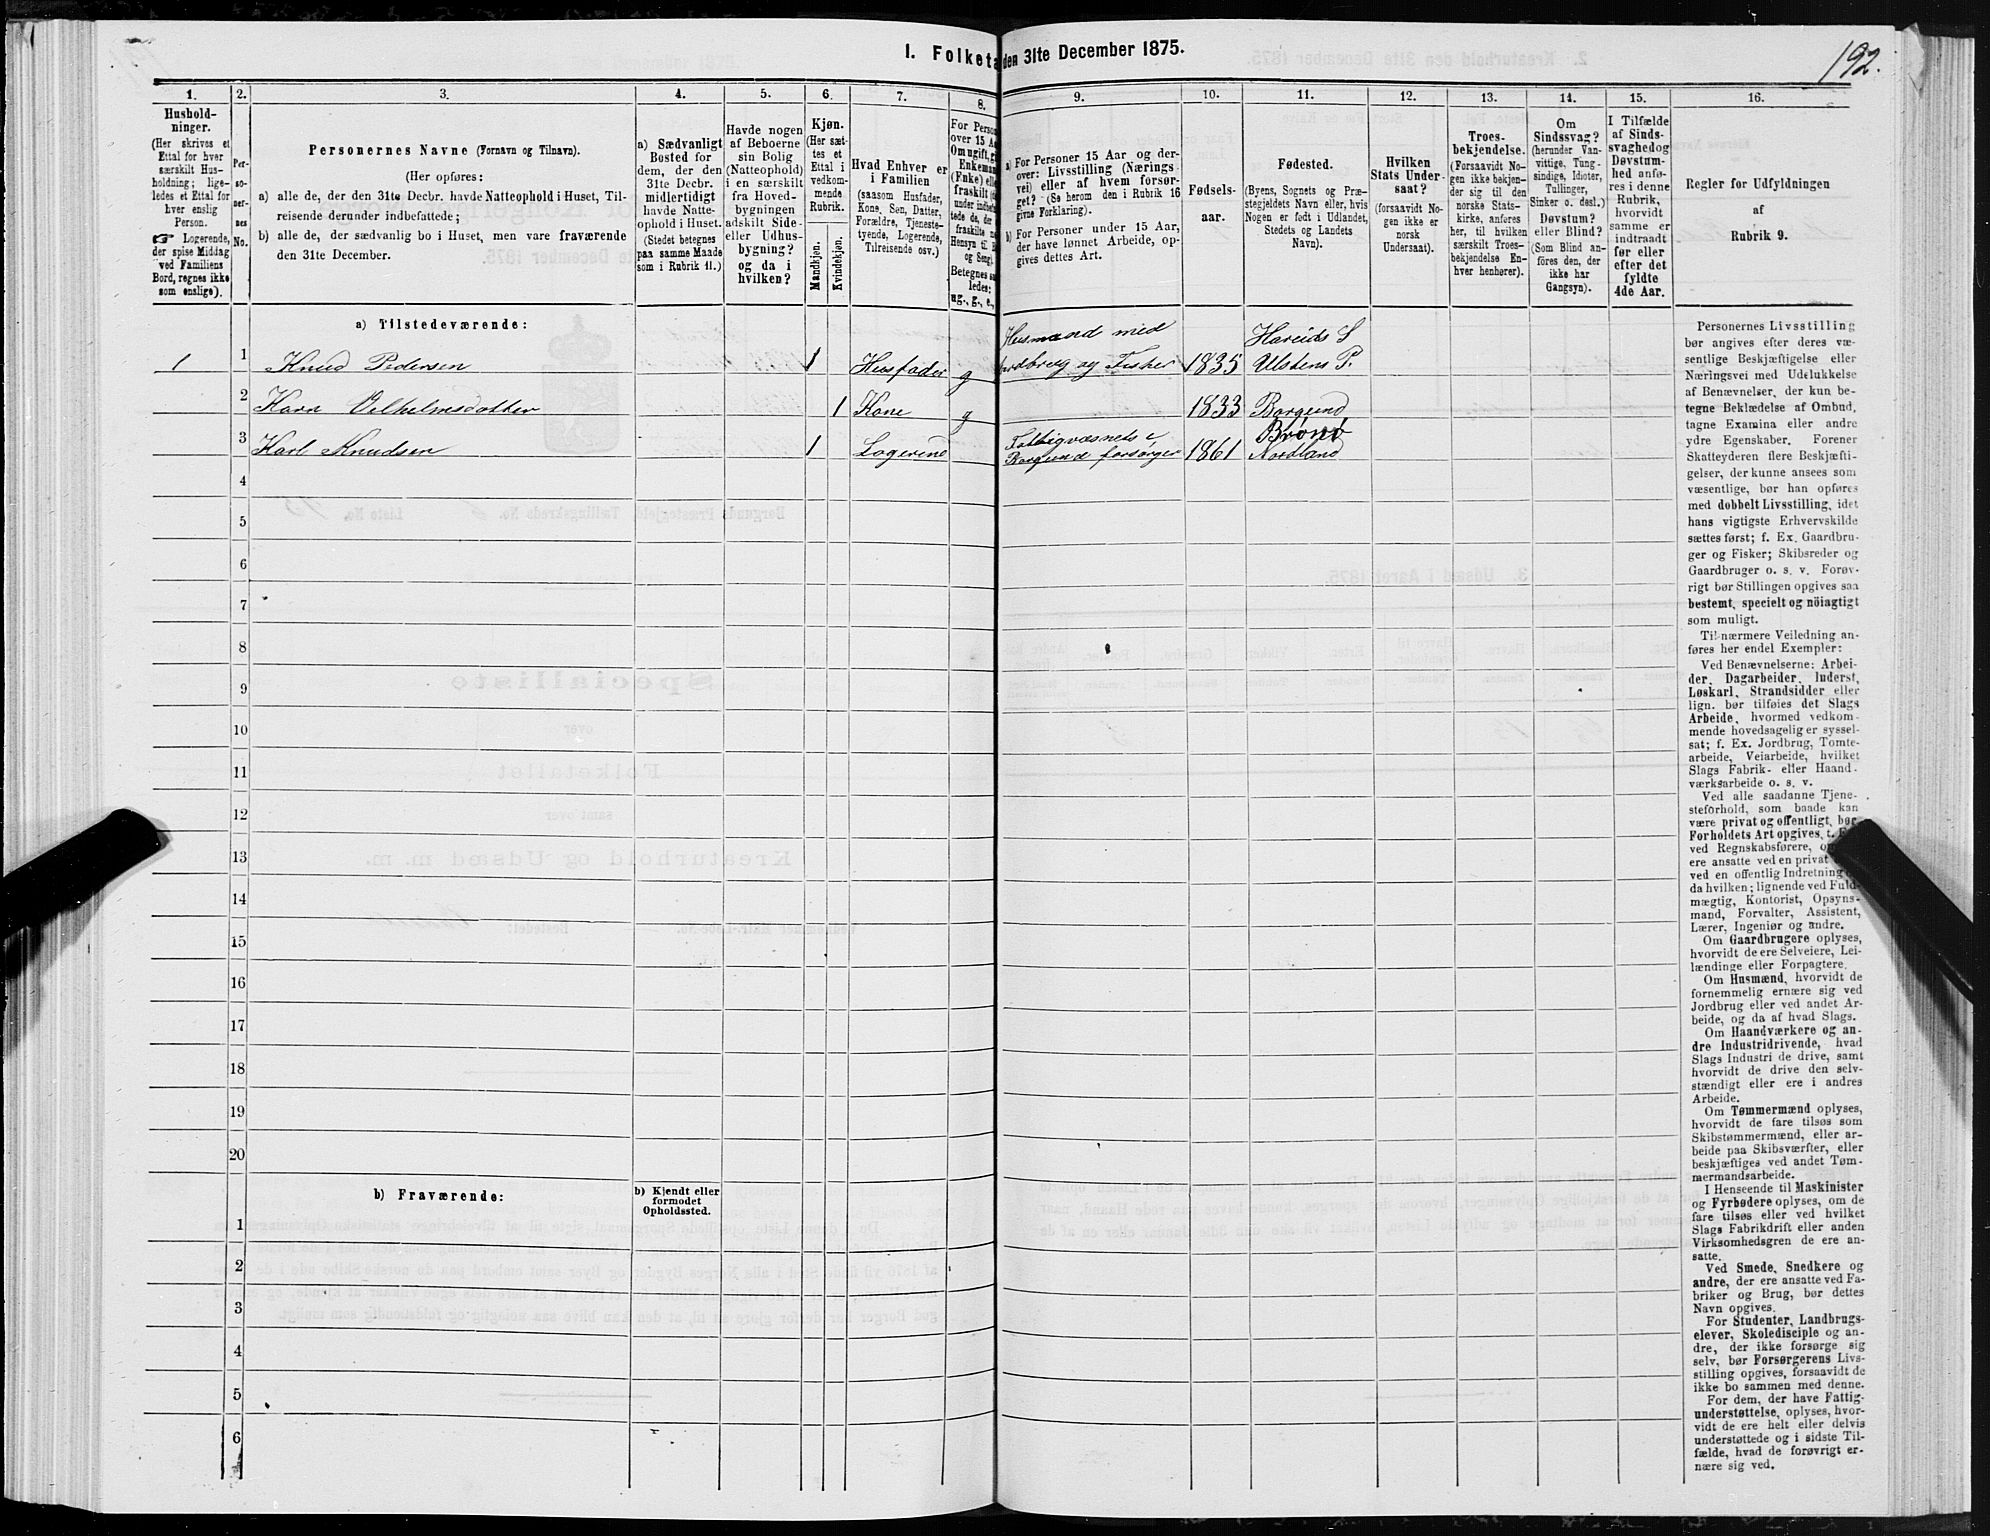 192.
I. Folketa den 31te December 1875.
1. 2. 3. 4. 5. 6. 7. 8. 9. 10. 11. 12. 13. 14. 15. 16.
Hushold-
ninger.
(Her skrives et
Ettal for hver
særskilt Hus-
holdning; lige-
ledes et Ettal for
hver enslig
Person.
☞ Logerende,
der spise Middag
ved Familiens
Bord, regnes ikke
som enslige).
Per-
so-
ner-
nes
No.
Personernes Navne (Fornavn og Tilnavn).
(Her opføres:
a) alle de, der den 31te Decbr. havde Natteophold i Huset, Til-
reisende derunder indbefattede;
b) alle de, der sædvanlig bo i Huset, men vare fraværende
den 31te December.
a) Sædvanligt
Bosted for
dem, der den
31te Decbr.
midlertidigt
havde Natte-
ophold i Huset.
(Stedet betegnes
paa samme Maade
som i Rubrik 11.)
Havde nogen
af Beboerne
sin Bolig
(Natteophold)
i en særskilt
fra Hoved-
bygningen
adskilt Side-
eller Udhus-
bygning?
og da i
hvilken?
Kjøn.
(Her sæt-
tes et
Ettal i
vedkom-
mende
Rubrik.
Mandkjøn.
Kvindekjøn.
Hvad Enhver er
i Familien
(saasom Husfader,
Kone, Søn, Datter,
Forældre, Tjeneste-
tyende, Logerende,
Tilreisende osv.)
For Person
over 15 Aa
Om ugift, gi
Enkeman
(Enke) ell
fraskilt
under indbef
tede de, de
fraskilte
Hensyn til
og Seng).
Betegnes saa
ledes:
ug., g., e.,
a) For Personer 15 Aar og der-
over: Livsstilling (Nærings-
vei) eller af hvem forsør-
get? (Se herom den i Rubrik 16
givne Forklaring).
b) For Personer under 15 Aar,
der have lønnet Arbeide, op-
gives dettes Art.
Fødsels-
aar.
Fødested.
(Byens, Sognets og Præ-
stegjeldets Navn eller, hvis
Nogen er født i Udlandet,
Stedets og Landets
Navn).
Hvilken
Stats Under-
saat?
(forsaavidt No-
gen ikke er
norsk
Undersaat).
Troes-
bekjendelse.
(Forsaavidt No-
gen ikke bekjen-
der sig til den
norske Stats-
kirke, anføres
her, til hvilken
særskilt Troes-
bekjendelse En-
hver henhører).
Om
Sindssvag?
(herunder Van-
vittige, Tung-
sindige, Idioter,
Tullinger,
Sinker o. desl.)
Døvstum?
eller Blind?
(Som Blind an-
føres den, der
ikke har
Gangsyn).
I Tilfælde
af Sinds-
svaghed og
Døvstum-
hed anfø-
res i denne
Rubrik,
hvorvidt
samme er
indtraadt
før eller
efter det
fyldte
4de Aar.
Regler for Udfyldningen
af
Rubrik 9.
a) Tilstedeværende:
Husmand med Hareids S
1 1 Knud Pedersen 1 Husfader g Jordbrug og Fisker 1835 Ulstens P.
2 Karn Velhelmsdatter 1 Kone g 1833 Borgund
Fattigvæsnets i Brønø
3 Karl Knudsen 1 Logerend Borgund forsørger 1861 Nordland
4
5
6
7
8
9
10
11
12
13
14
15
16
17
18
19
20
b) Fraværende:
b) Kjendt eller
formodet
Opholdssted.
1
2
3
4
5
6
Personernes Livsstilling
bør angives efter deres væ-
sentlige Beskjæftigelse eller
Næringsvei med Udelukkelse
af Benævnelser, der kun be-
tegne Beklædelse af Ombud,
tagne Examina eller andre
ydre Egenskaber. Forener
Skatteyderen flere Beskjæfti-
gelser, der kunne ansees som
væsentlige, bør han opføres
med dobbelt Livsstilling, idet
hans vigtigste Erhvervskilde
sættes først; f. Ex. Gaardbru-
ger og Fisker; Skibsreder og
Gaardbruger o. s. v. Forøv-
rigt bør Stillingen opgives saa
bestemt, specielt og nöiagtigt
som muligt.
Til nærmere Veiledning an-
føres her endel Exempler:
Ved Benævnelserne: Arbei-
der, Dagarbeider, Inderst,
Løskarl, Strandsidder eller
lign. bør tilføies det Slags
Arbeide, hvormed vedkom-
mende hovedsagelig er syssel-
sat; f. Ex. Jordbrug, Tomte-
arbeide, Veiarbeide, hvilket
Slags Fabrik- eller Haand-
værksarbeide o. s. v.
Ved alle saadanne Tjene-
steforhold, som baade kan
være privat og offentligt, bør
Forholdets Art opgives, t. E
ved Regnskabsførere, o
ere ansatte ved en privat
ved en offentlig Indretning
da hvilken; lignende ved Fuld-
mægtig, Kontorist, Opsyns-
mand, Forvalter, Assistent,
Lærer, Ingeniør og andre.
Om Gaardbrugere oplyses,
hvorvidt de ere Selveiere, Lei-
lændinge eller Forpagtere.
Om Husmænd, hvorvidt de
fornemmelig ernære sig ved
Jordbrug eller ved andet Ar-
beide, og da af hvad Slags.
Om Haandværkere og an-
dre Industridrivende, hvad
Slags Industri de drive, samt
hvorvidt de drive den selv-
stændigt eller ere i andres
Arbeide.
Om Tømmermænd oplyses,
hvorvidt de fare tilsøs som
Skibstømmermænd, eller ar-
beide paa Skibsværfter, eller
beskjæftiges ved andet Tøm-
mermandsarbeide.
I Henseende til Maskinister
og Fyrbødere oplyses, om de
fare tilsøs eller ved hvilket
Slags Fabrikdrift eller anden
Virksomhedsgren de ere an-
satte.
Ved Smede, Snedkere og
andre, der ere ansatte ved Fa-
briker og Brug, bør dettes
Navn opgives.
For Studenter, Landbrugs-
elever, Skoledisciple og an-
dre, der ikke forsørge sig
selv, bør Forsørgerens Livs-
stilling opgives, forsaavidt de
ikke bo sammen med denne.
For dem, der have Fattig-
understøttelse, oplyses, hvor-
vidt de ere helt eller delvis
understøttede og i sidste Til-
fælde, hvad de forøvrigt er-
nære sig ved.